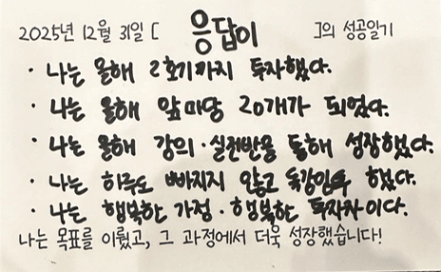 2025년 12월 31일 [ 응답이 ]의 성공일기
· 나는 올해 2호기까지 투자했다.
· 나는 올해 앞마당 20개가 되었다.
· 나는 올해 강의·실전반을 통해 성장했다.
· 나는 하루도 빠지지 않고 독강임투 했다.
· 나는 행복한 가정·행복한 투자자이다.
나는 목표를 이뤘고, 그 과정에서 더욱 성장했습니다!